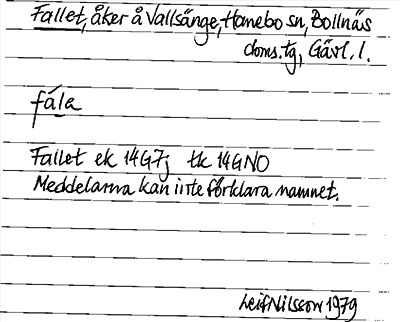 Fallet, åker å Vallsänge, Hanebo sn, Bollnäs
doms.tg, Gävl. l.
fála
Fallet ek 14G7j tk 14GNO
Meddelarna kan inte förklara namnet.
Leif Nilsson 1979